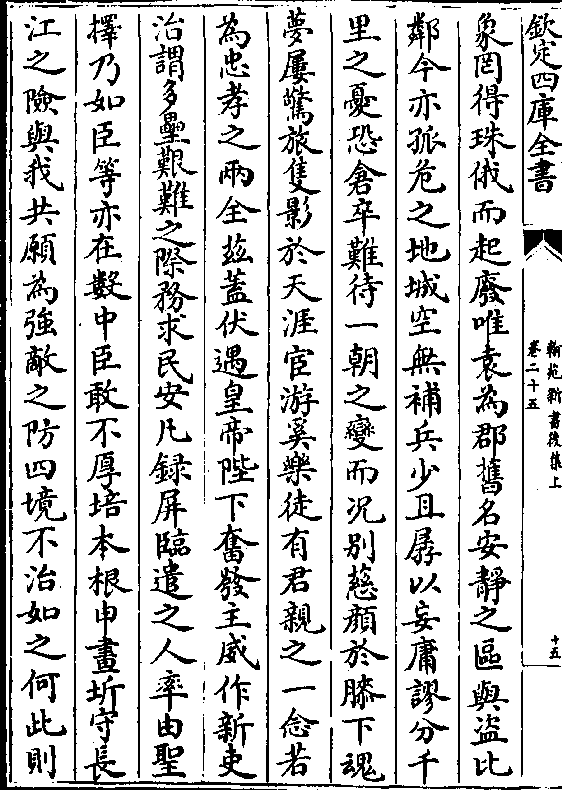 欽定四庫全書
翰苑新書後集上
卷二十五
十五
象罔得珠俄而起廢唯袁為郡舊名安靜之區與盜比
鄰今亦孤危之地城空無補兵少且孱以妄庸謬分千
里之憂恐倉卒難待一朝之變而況别慈顔於膝下魂
夢屢驚旅隻影於天涯宦游奚樂徒有君親之一念若
為忠孝之兩全兹蓋伏遇皇帝陛下奮發主威作新吏
治謂多壘艱難之際務求民安凡録屏臨遣之人率由聖
擇乃如臣等亦在數中臣敢不厚培本根申畫圻守長
江之險與我共願為強敵之防四境不治如之何此則